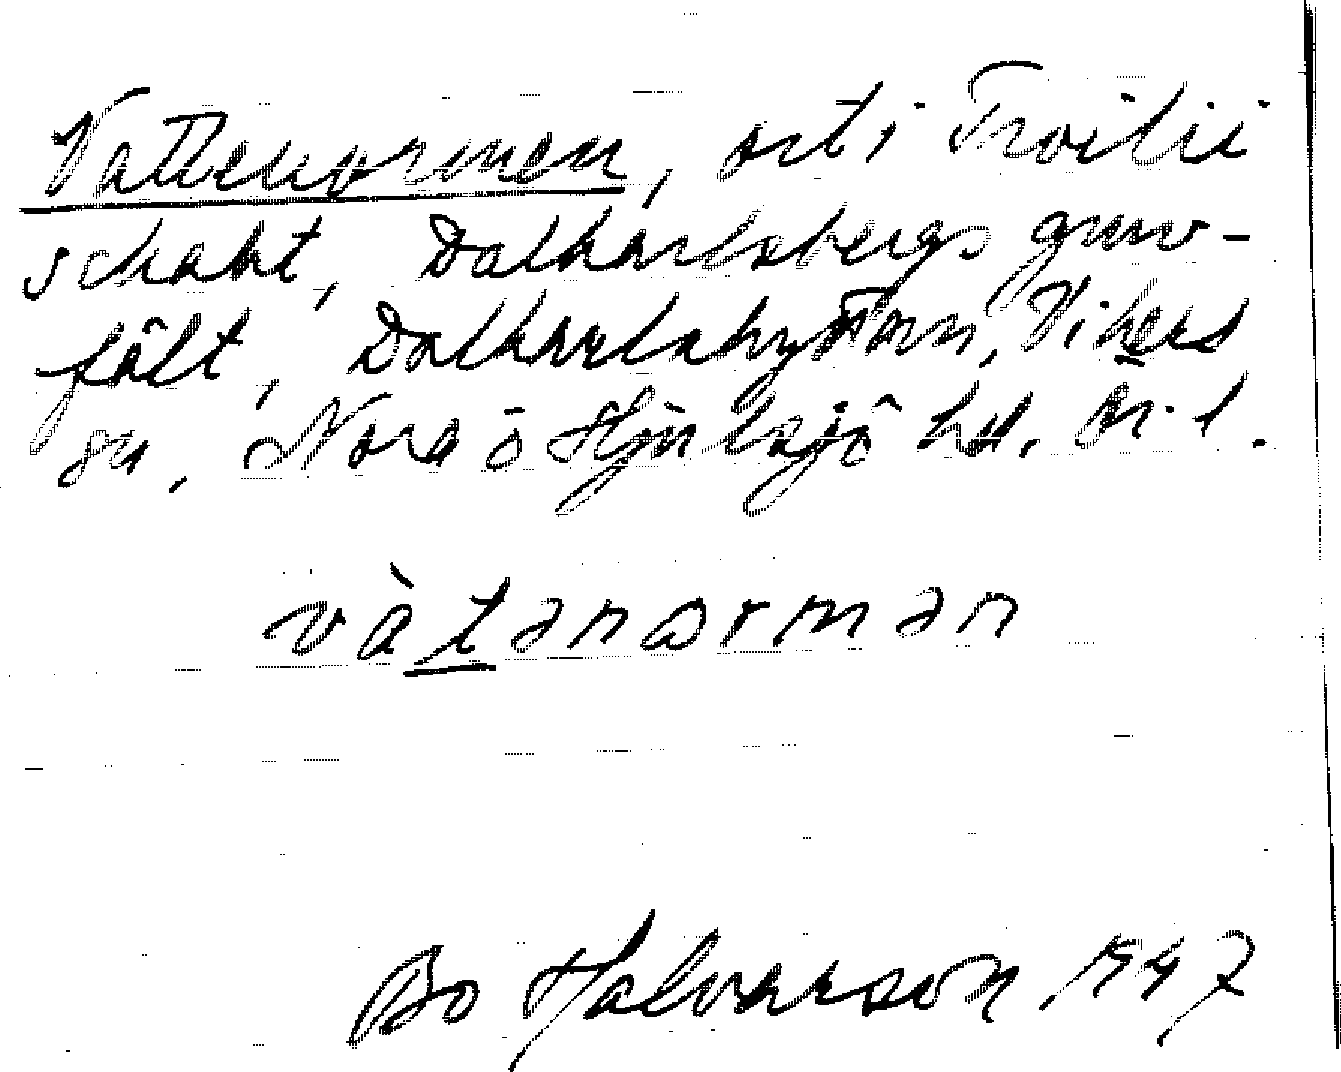 Vattenormen, ort i Troilii
schakt, Dalkarlsbergs gruv-
fält, Dalkarlshyttan, Vikers
sn, Nora o Hjulsjö hd. Ör. l.
vàtənɷrmən
Bo Halvarson 1947